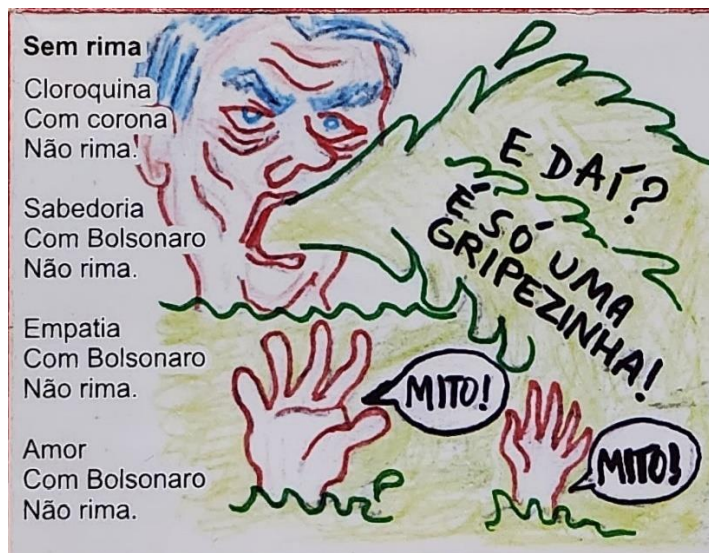 Sem rima
Cloroquina
Com corona
Não rima.
Sabedoria
Com Bolsonaro
Não rima.
Empatia
Com Bolsonaro
Não rima.
Amor
Com Bolsonaro
Não rima.
E DAÍ?
É SÓ UMA
GRIPEZINHA!
MITO!
MITO!